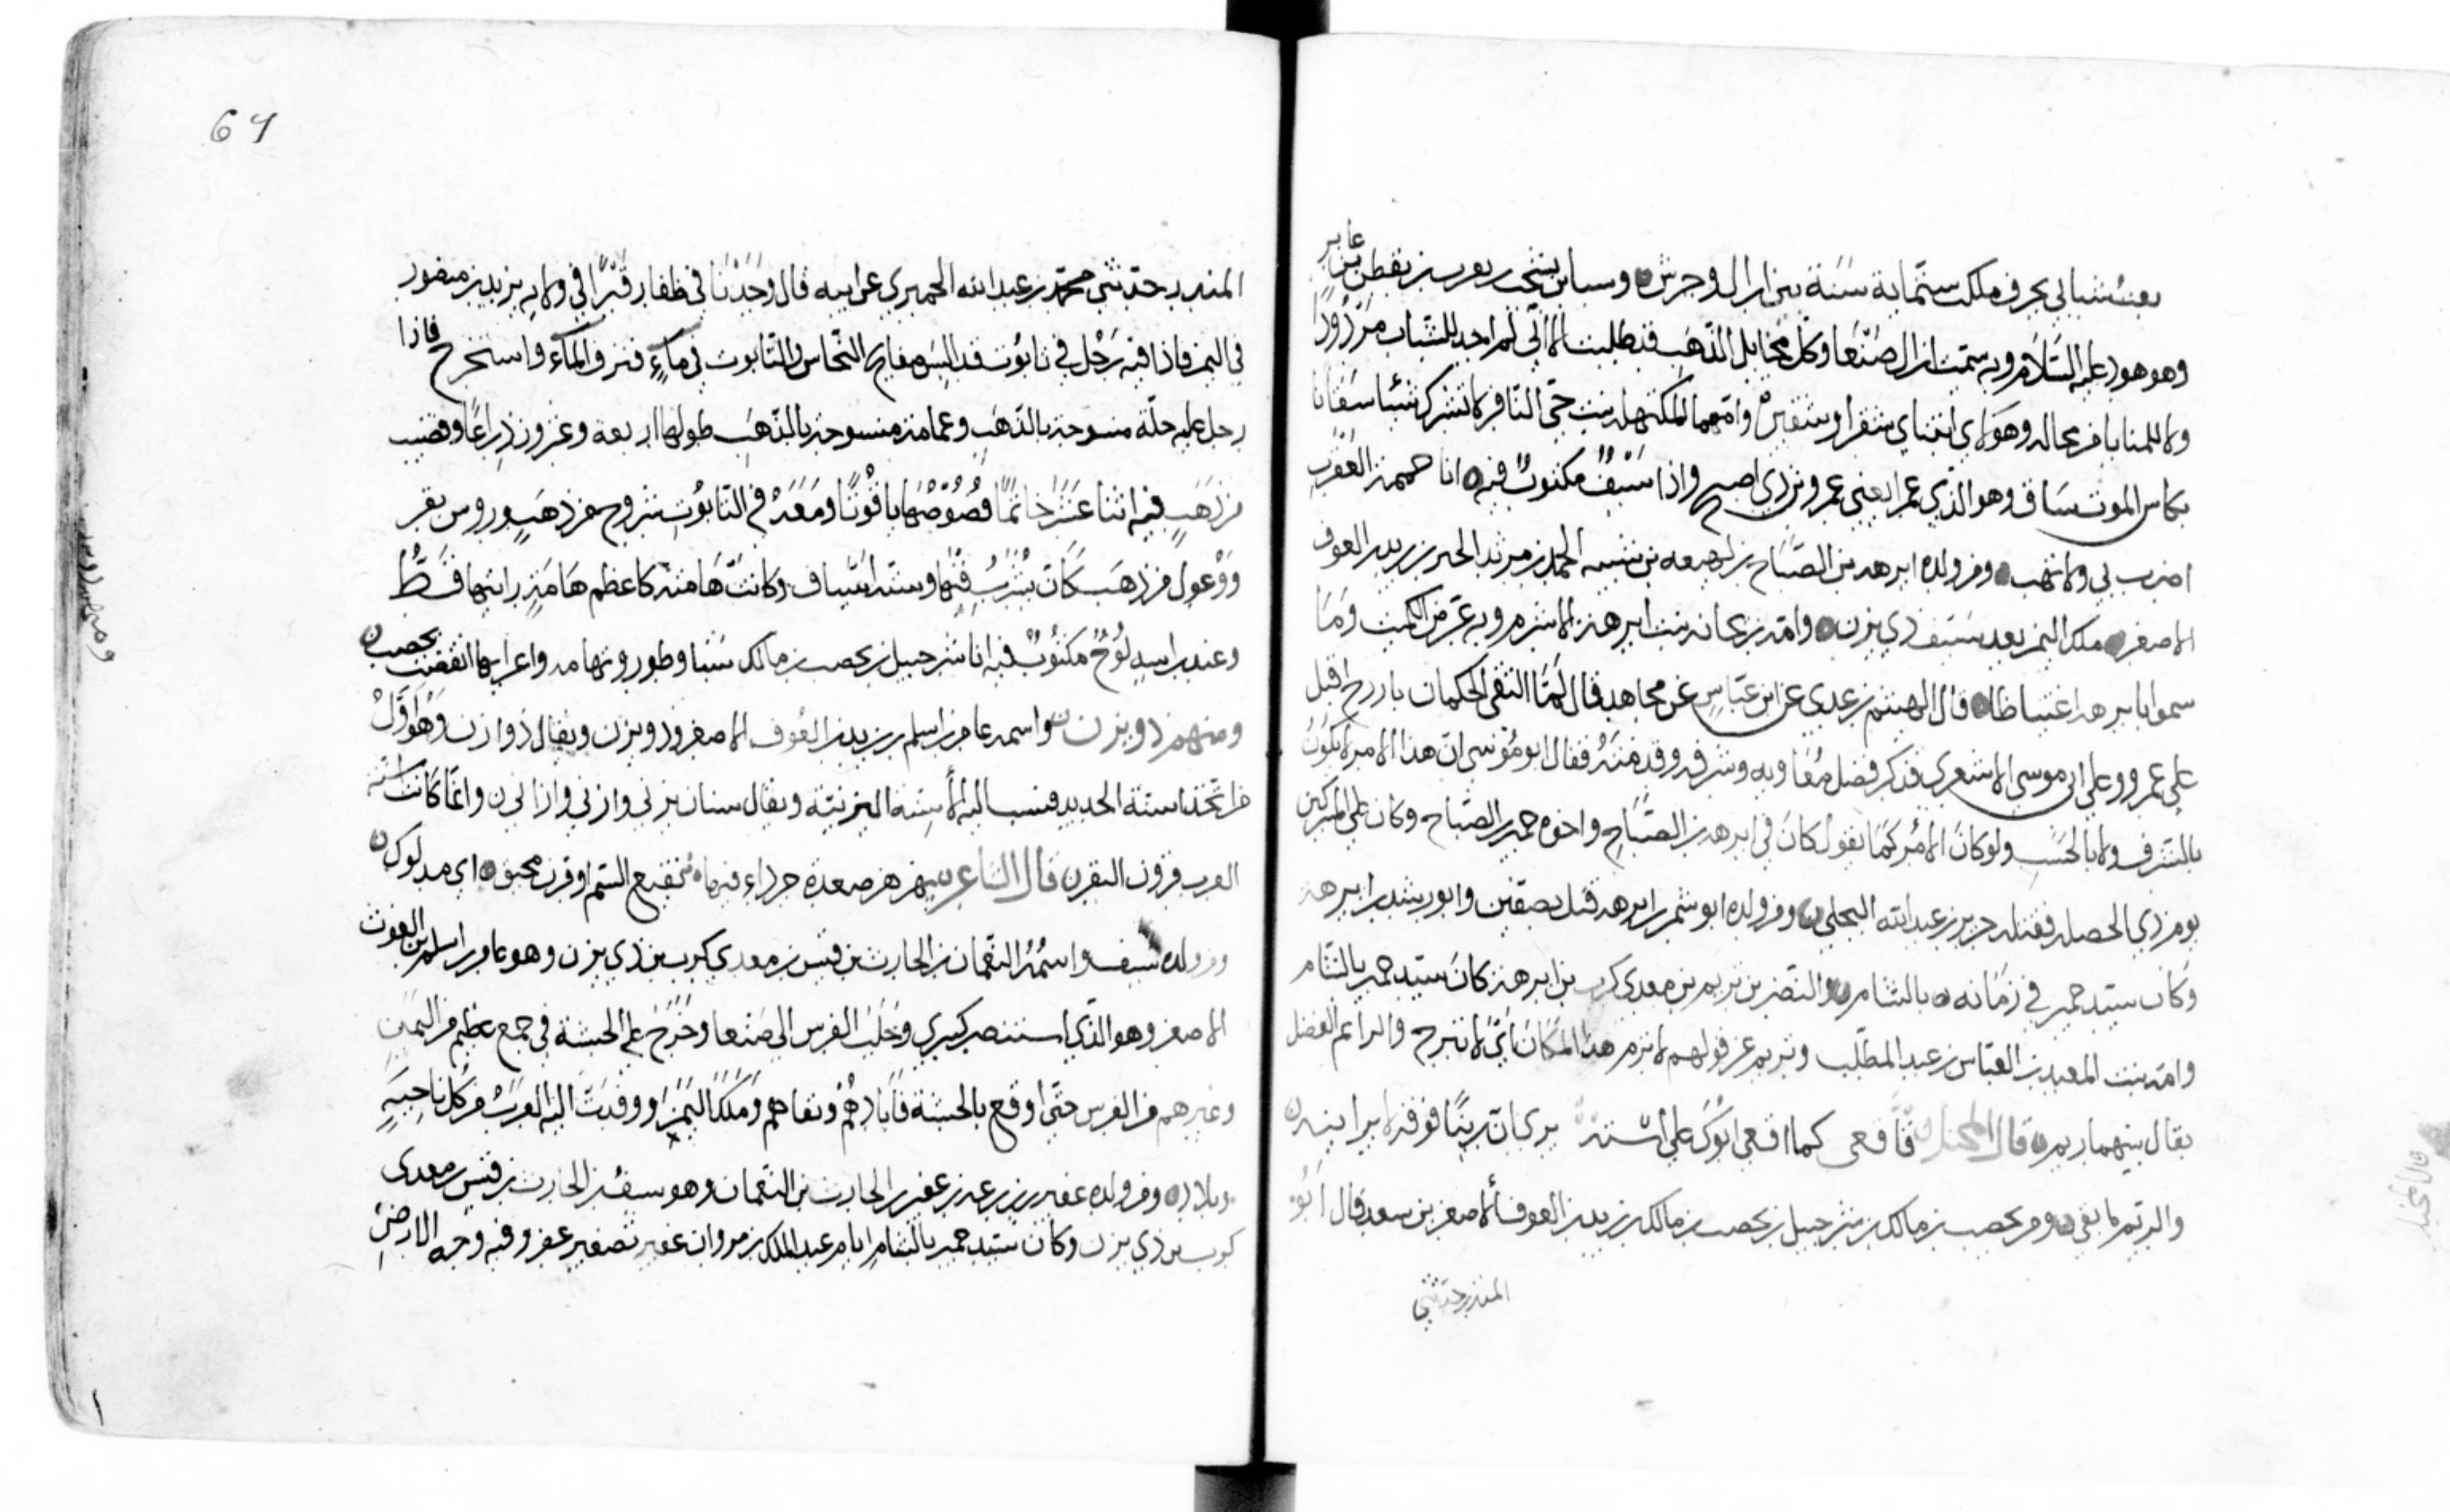 بعث شبا لي بحرف ملكت ستماية سنة بين ازال وجرش وسبا بن يشجب يعرب بن يقطن بن عابر
وهو هود عليه السلام وبه سميت ازال صنعا وكل مخابل الذهب قد طلبت الا اني لم اجد للشباب مردودا
ولا للمنايا فر محاله وهولاي ابنتاي شفرا وشقير وامهما لملكتها بنت حي النا فر لا تشرك شيئا سقانا
بكاس الموت ساق وهو الذي عمر يعني عمرو بن ذي اصبح واذا سيف مكتوب فيه انا حممة العقرب
اضرب بي ولا تهب ومن ولده ابرهه بن الصباح بن لهيعه بن شيبه الحمد بن مرثد الخير بن زيد بن العوف
الاصغر ملك اليمن بعد سيف ذي يزن وامه ريحانه بنت ابرهة الاشرم وبه عرض الكميت وما
سموا بابرهة اغتباطا قال الهيثم بن عدي عن ابن عباس عن مجاهد قال لما التقى الحكمان باذرح اقبل
على عمرو وعلى ابي موسى الاشعري فذكر فضل معاويه وشرفه وقدمته فقال ابو موسى ان هذا الامر لا يكون
بالشرف ولا بالحسب ولو كان الامر كما تقول كان في ابرهه بن الصباح واخوه حمير بن الصباح وكان على المشركين
يوم ذي الخصله فقتله جرير بن عبد الله البجلي ومن ولده ابو شمر بن ابرهه قتل بصفين وابو رشد بن ابرهة
وكان سيد حمير في زمانه بالشام والنضر بن يريم بن معدي كرب بن ابرهة كان سيد حمير بالشام
وامه بنت المعبد بن العباس بن عبد المطلب ويريم عن قولهم لا نرم هذا المكان اي لا تبرح والراعم الفضل
يقال بينهما ريم قال المخبل فاقعى كما اقعى ابوك على استه يرى ان ريما فوقه لا يزايله
والريم ما بقي ومن يحصب بن مالك بن شرحبيل بن يحصب بن مالك بن زيد بن العوف الاصغر بن سعد قال ابو
المنذر حدثني
قال المخبل
64
المنذر حدثني محمد بن عبد الله الحميري عن ابيه قال وجدنا في ظفار قبرا في ولايه يزيد بن منصور
في اليمن فاذا فيه رجل في تابوت قد البس صفايح النحاس والتابوت في ماء فنزف الماء واستخرج فاذا
رجل عليه حلة منسوجة بالذهب وعمامة منسوجة بالذهب طولها اربعة وعشرون ذراعا وقضيب
من ذهب فيه اثنا عشر خاتما فصوصها ياقوتا ومعه في التابوت شروح من ذهب وروس بقر
ووعول من ذهب كان يشرب فيها وستة اسياف وكانت هامته كاعظم هامة رايتها قط
وعند راسه لوح مكتوب فيه انا شرحبيل بن يحصب بن مالك سبا وطور وتهامه واعرابها انقضت يحصب
ومنهم ذو يزن واسمه عامر بن اسلم بن زيد بن العوف الاصغر وذو يزن ويقال ذو ازن وهو اول
من اتخذ اسنة الحديد فنسب اليه الاسنة اليزنية ويقال سنان يزني وازني وازاني وانما كانت اسنه
العرب قرون البقر قال الشاعر يهزهز صعدة جرداء فيها نقيع السم او قرن محيق اي مدلوك
ومن ولده سيف واسمه النعمان بن الحارث بن قيس بن معدي كرب بن ذي يزن وهو عامر بن اسلم بن الغوث
الاصغر وهو الذي استنصر كسرى وجلب الفرس الى صنعا وخرج على الحبشة في جمع عظيم من اليمن
وغيرهم من الفرس حتى اوقع بالحبشة فابادهم ونفاهم وملك اليمن ووفدت اليه العرب من كل ناحية
وبلاد ومن ولده عفير بن زرعه بن عفير بن الحارث بن النعمان وهو سيف بن الحارث بن قيس بن معدي
كرب بن ذي يزن وكان سيد حمير بالشام ايام عبد الملك بن مروان عفير تصغير عفر وفيه وجه الارض